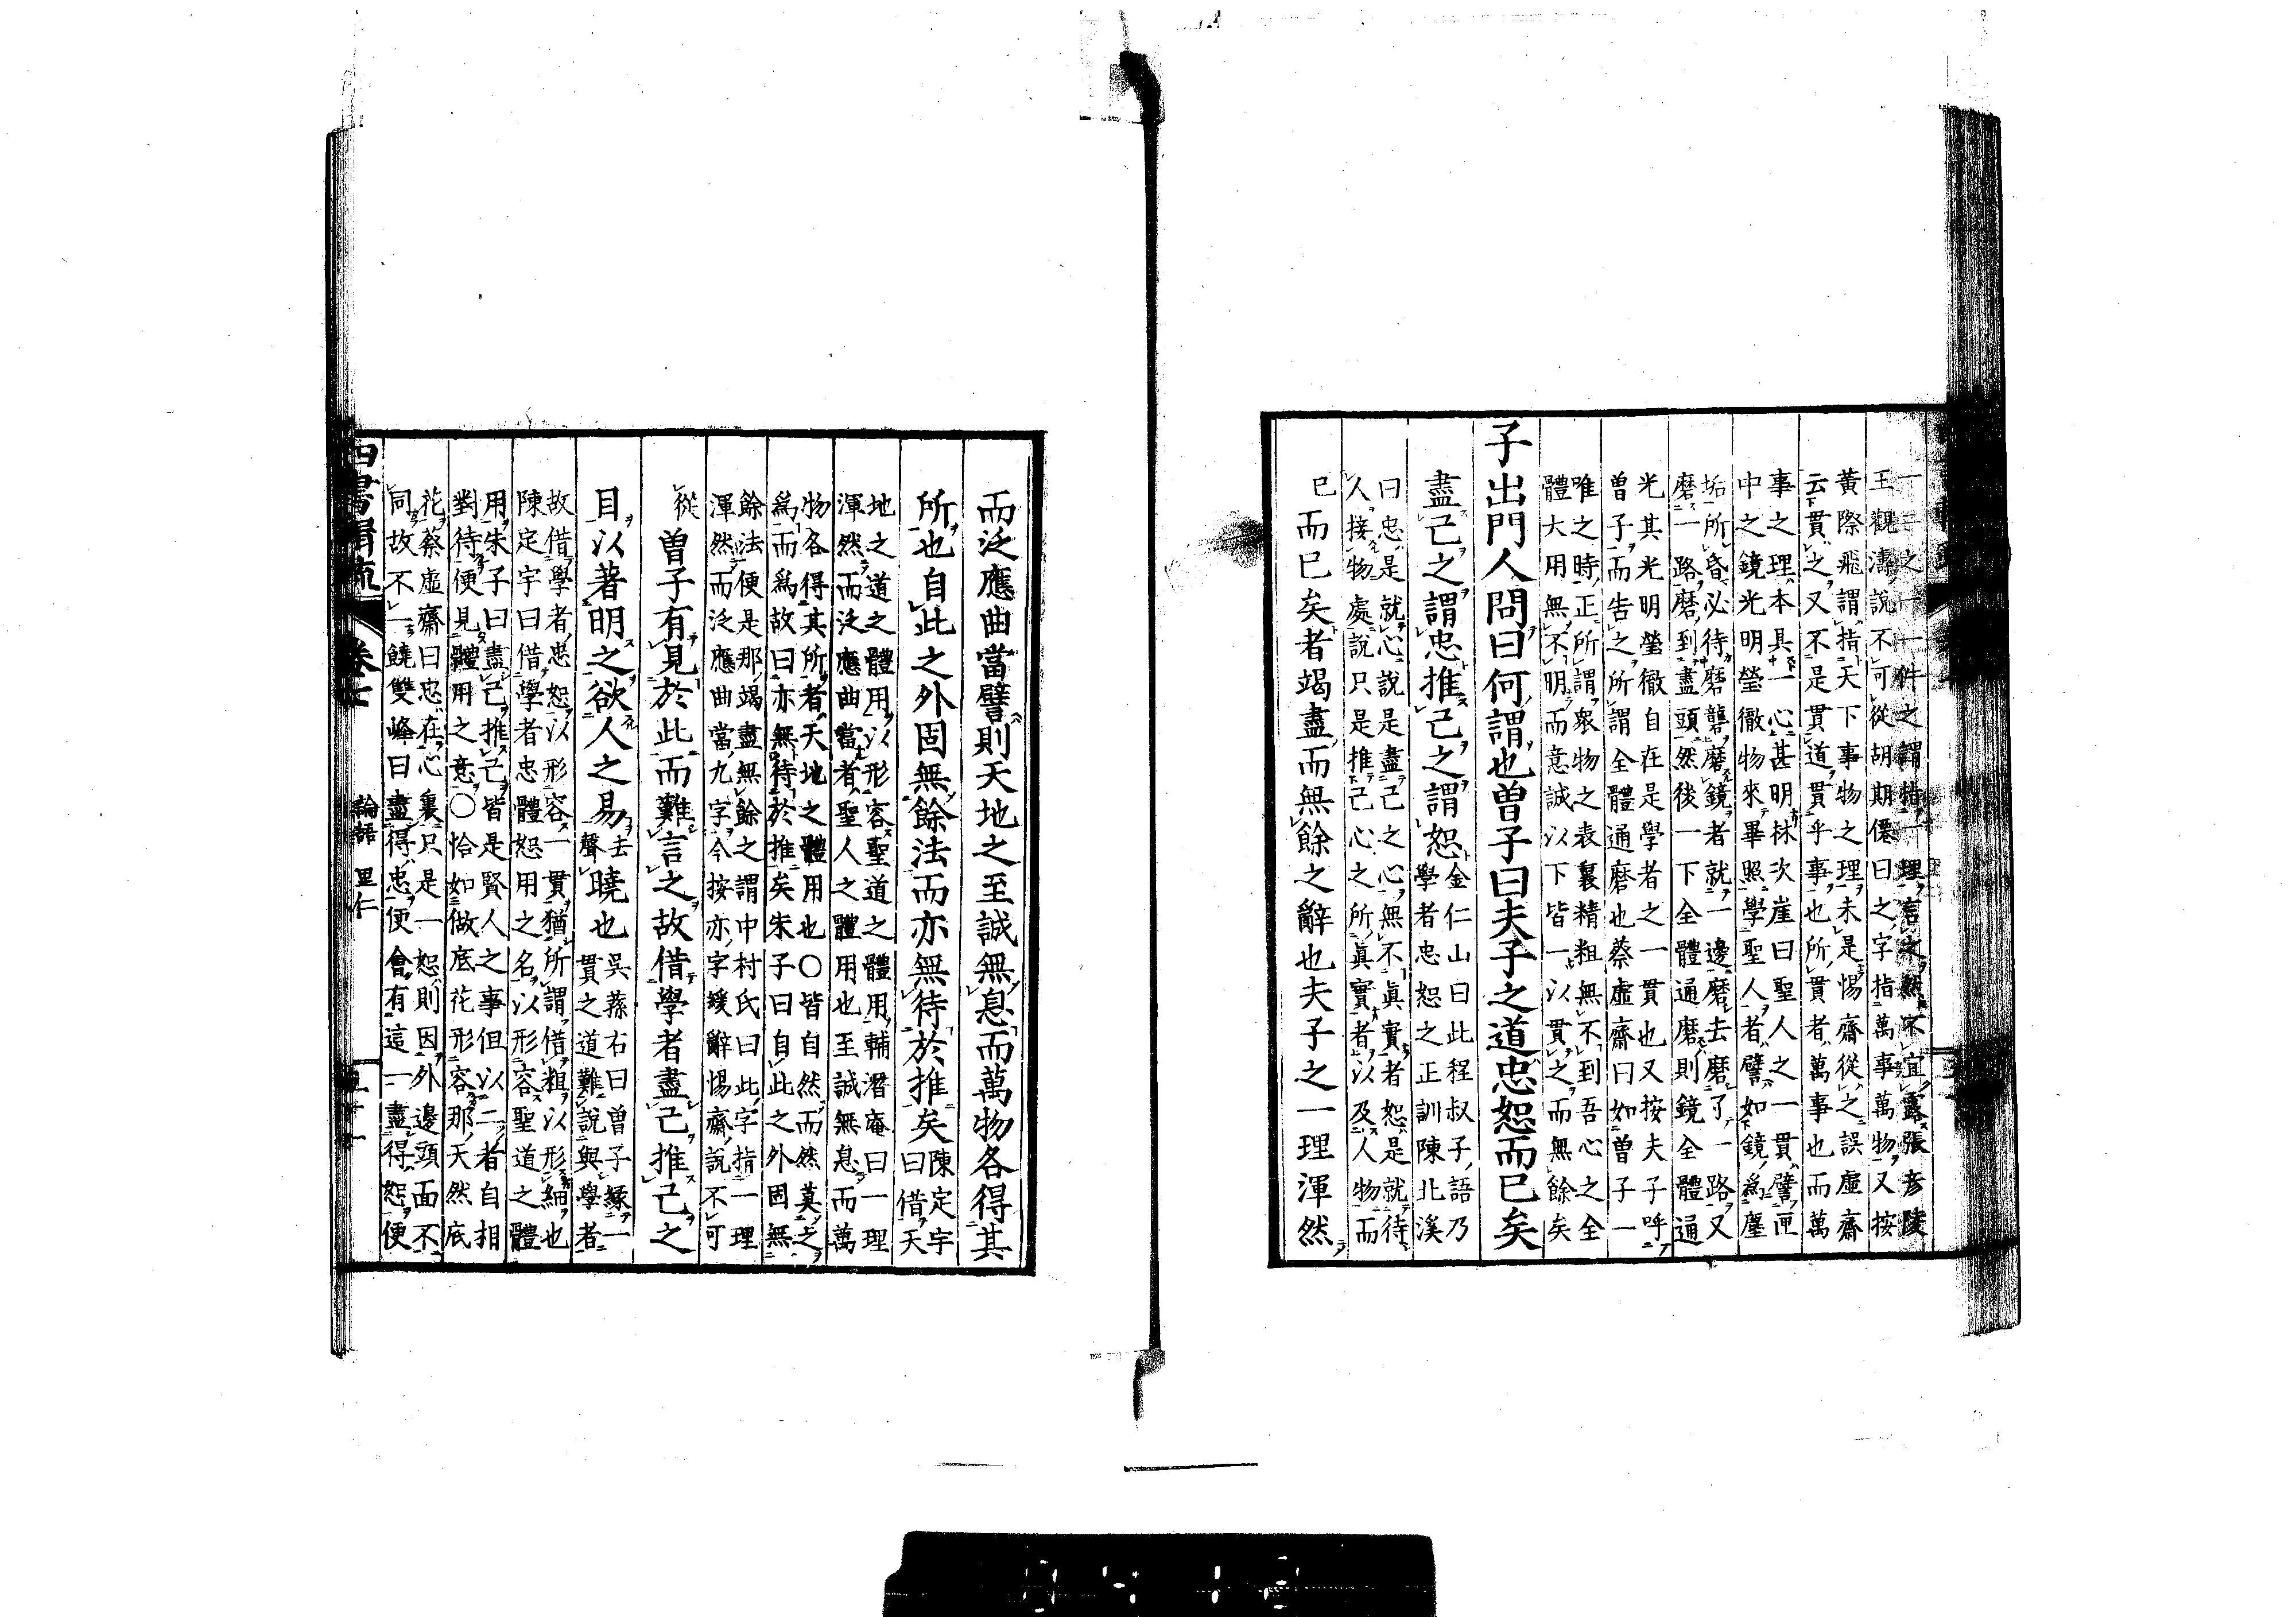 一二之一一件之謂指一理言之然不宜露張彥陵
王觀濤說不可從胡期僊曰之字指萬事萬物又按
黃際飛謂指天下事物之理未是惕齋從之誤虛齋
云貫之又不是貫道貫乎事也所貫者萬事也而萬
事之理本具一心甚明林次崖曰聖人之一貫譬匣
中之鏡光明瑩徹物來畢照學聖人者譬如鏡爲塵
垢所昏必待磨礱磨鏡者就一邊磨去磨了一路又
磨一路磨到盡頭然後一下全體通磨則鏡全體通
光其光明瑩徹自在是學者之一貫也又按夫子呼
曾子而告之所謂全體通磨也蔡虛齋曰如曾子一
唯之時正所謂衆物之表裏精粗無不到吾心之全
體大用無不明而意誠以下皆一以貫之而無餘矣
子出門人問曰何謂也曾子曰夫子之道忠恕而已矣
盡己之謂忠推己之謂恕
金仁山曰此程叔子語乃
學者忠恕之正訓陳北溪
曰忠是就心說是盡己之心無不眞實者恕是就待
人接物處說只是推己心之所眞實者以及人物而
已
而已矣者竭盡而無餘之辭也夫子之一理渾然
而泛應曲當譬則天地之至誠無息而萬物各得其
所也自此之外固無餘法而亦無待於推矣
陳定宇
曰借天
地之道之體用以形容聖道之體用輔潛庵曰一理
渾然而泛應曲當者聖人之體用也至誠無息而萬
物各得其所者天地之體用也〇皆自然而然莫之
爲而爲故曰亦無待於推矣朱子曰自此之外固無
餘法便是那竭盡無餘之謂中村氏曰此字指一理
渾然而泛應曲當九字今按亦字緩辭惕齋說不可
從
曾子有見於此而難言之故借學者盡己推己之
目以著明之欲人之易
去
聲
曉也
吳蓀右曰曾子緣一
貫之道難說與學者
故借學者忠恕以形容一貫猶所謂借粗以形細也
陳定宇曰借學者忠體恕用之名以形容聖道之體
用朱子曰盡己推己皆是賢人之事但以二者自相
對待便見體用之意〇恰如做底花形容那天然底
花蔡虛齋曰忠在心裏只是一恕則因外邊頭面不
同故不一饒雙峰曰盡得忠便會有這一盡得恕便
四書輯疏 卷七 論語 里仁